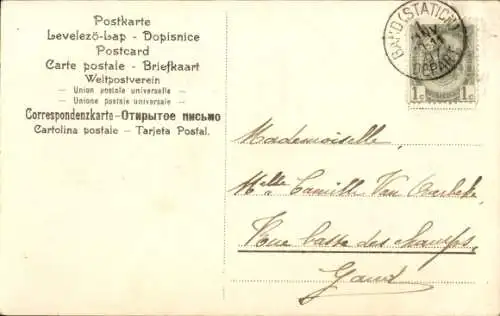 Postkarte
Levelezö-Lap - Dopisnice
Postcard
Carte postale - Briefkaart
Weltpostverein
— Union postale universelle —
— Unione postale universale —
Correspondenzkarte—Открытое письмо
Cartolina postale — Tarjeta Postal.
GAND (STATION)
DEPART
1c 1c
Mademoiselle,
Melle Camille Van
Rue basse des champs,
Gand